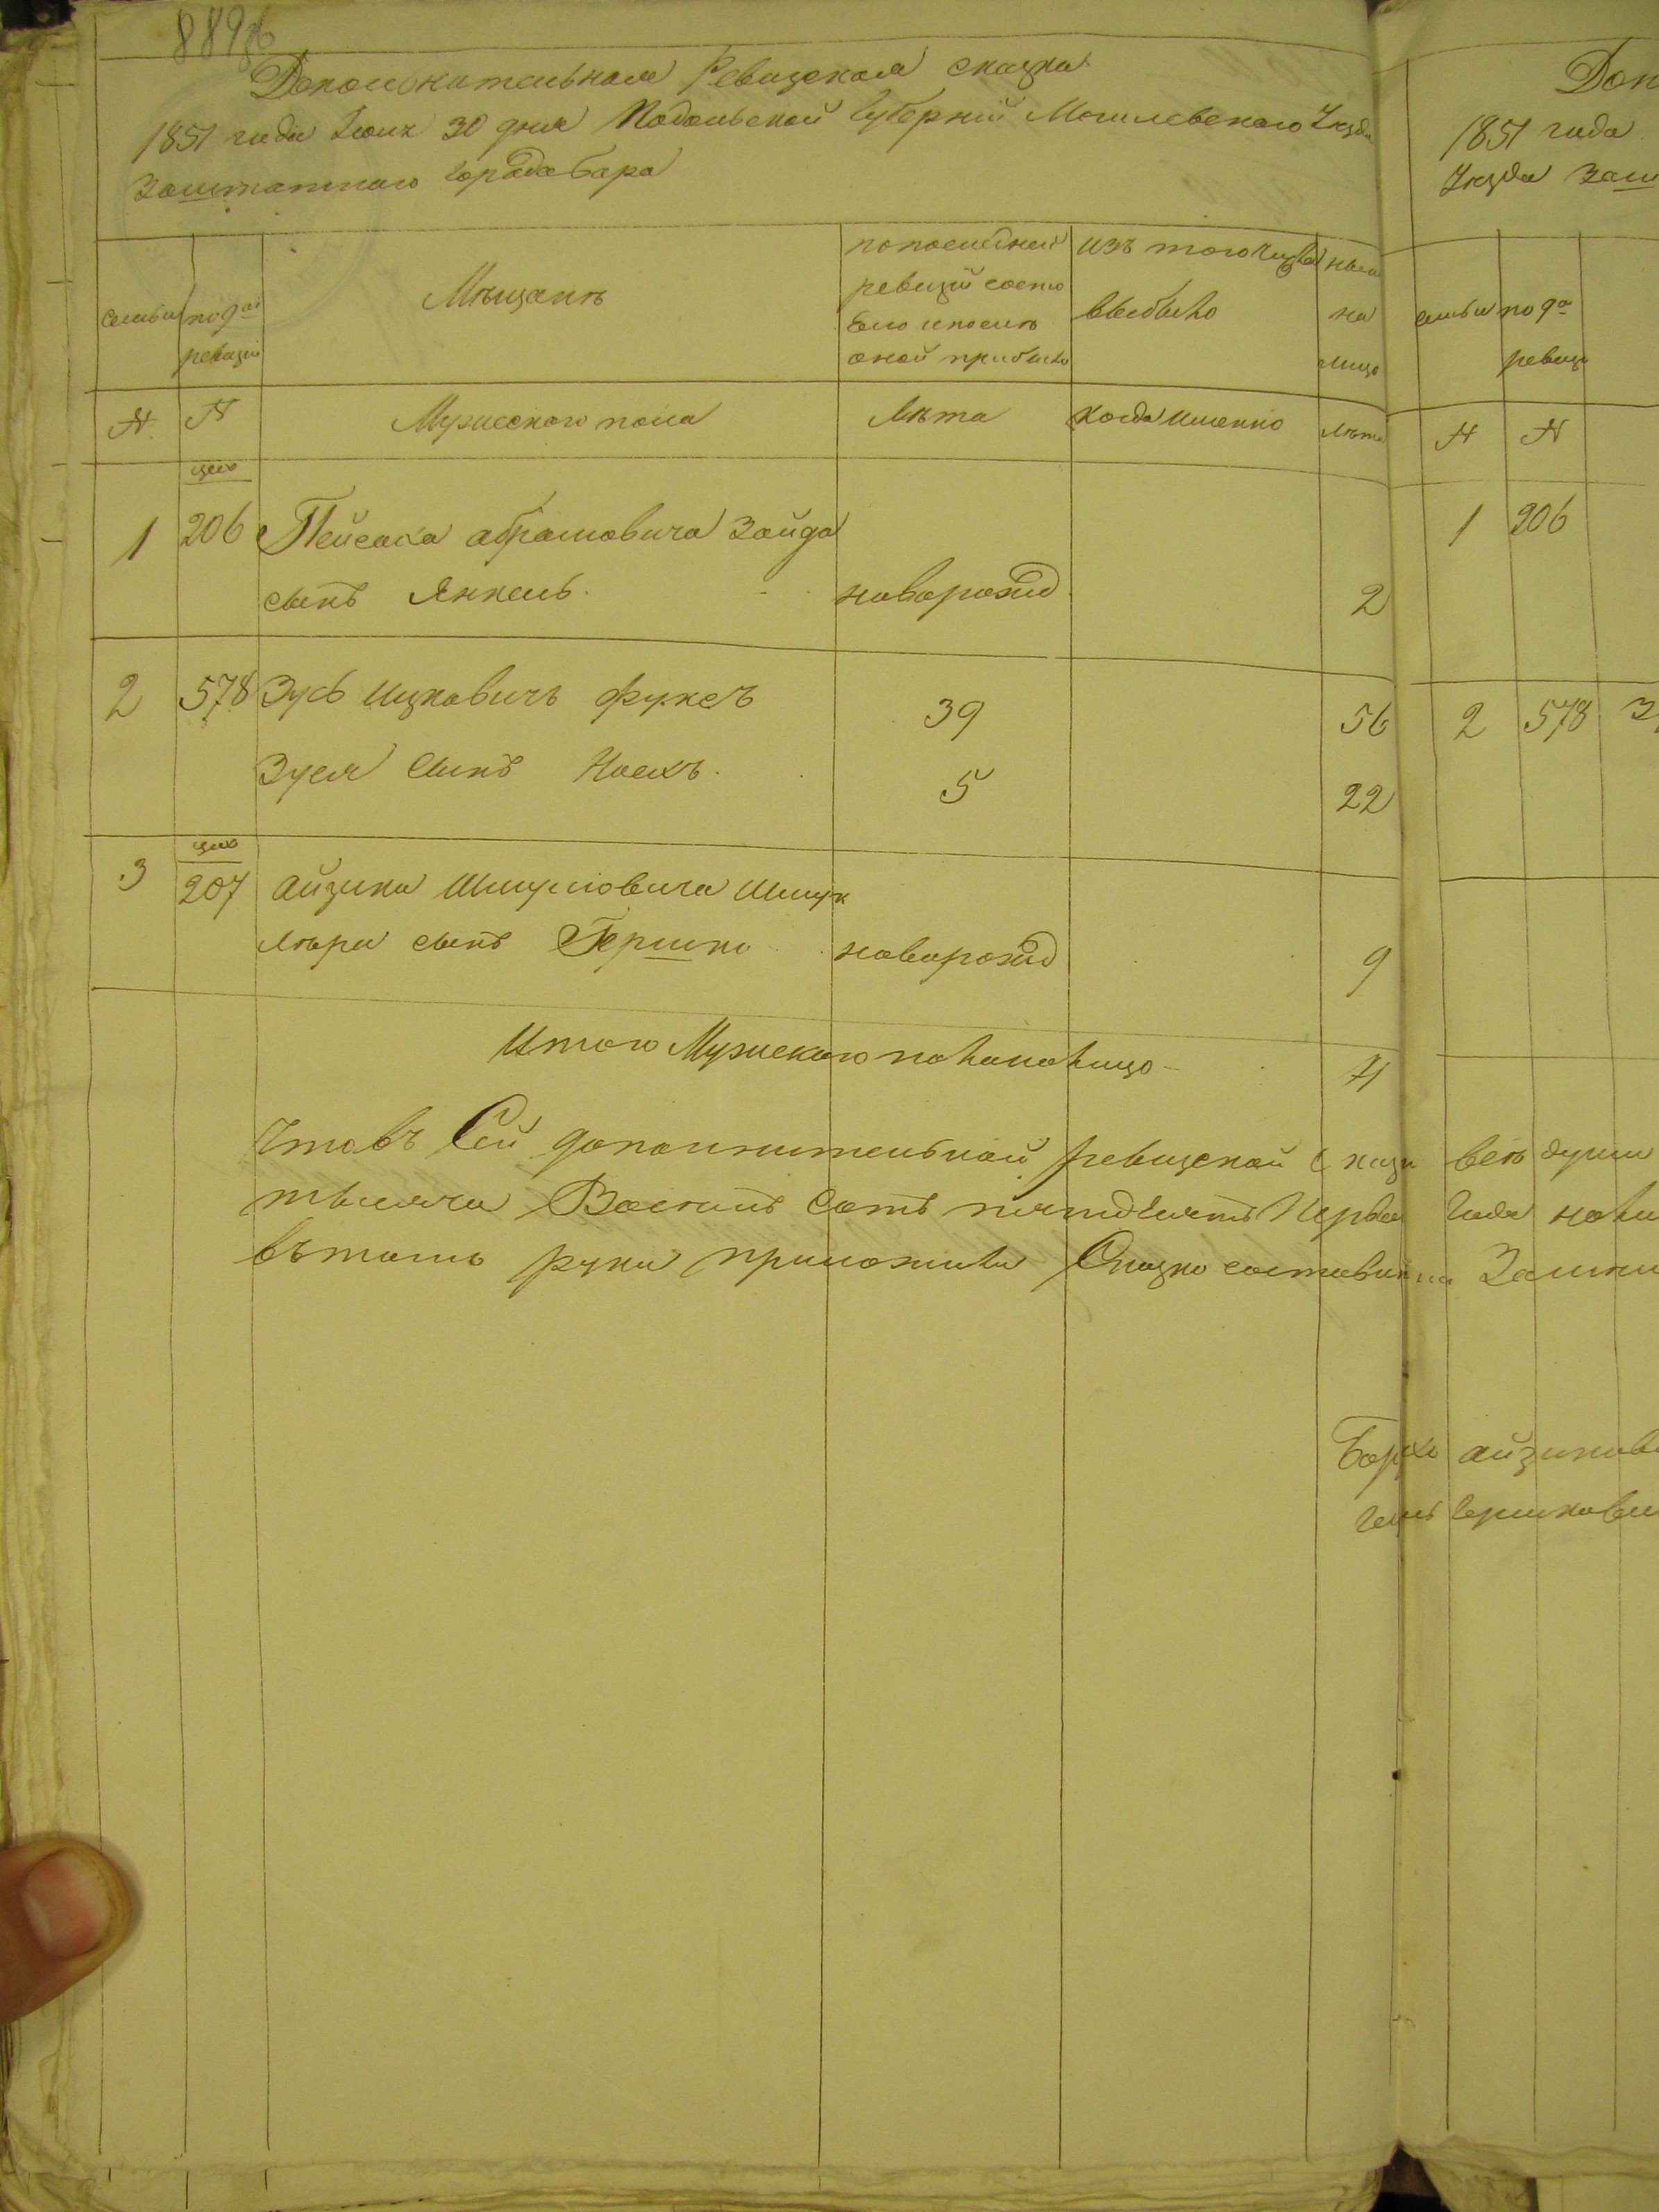 889 об
Дополнительная Ревизская сказка
1851 года Июня 30 дня Подольской Губернiи Могилевского Уѣзда
Заштатного города Бара
семьи
по 9ой ревизiи
Мѣщанъ
по последней
ревизiи состо
яло и послѣ
оной прибыло
изъ того числа
выбыло
ныне
на
лицо
№ № Мужеского пола Лѣта Когда именно Лѣта
цех
1 206 Пейсаха Абрамовича Зайда
сынъ Янкель новорожд 2
2 578 Зусь Ицковичъ Фуксъ 39 56
Зуся сынъ 5 22
цех
3 207 Айзика Шмулевича Шмук
лѣра сынъ Гершко новорожд 9
Итого Мужеского пола на лицо 4
Что въ Сей дополнительной ревизской Сказки
тысяча Восемъ Сотъ пятдесятъ Перваго
въ томъ руки приложили Сказко составители
Доп
1851 года
Уѣзда Заш
семьи по 9ой
ревизiи
№ №
1 206
2 578 З
всѣ души
Года
Зашта
Борхъ Айзикови
Гершкови